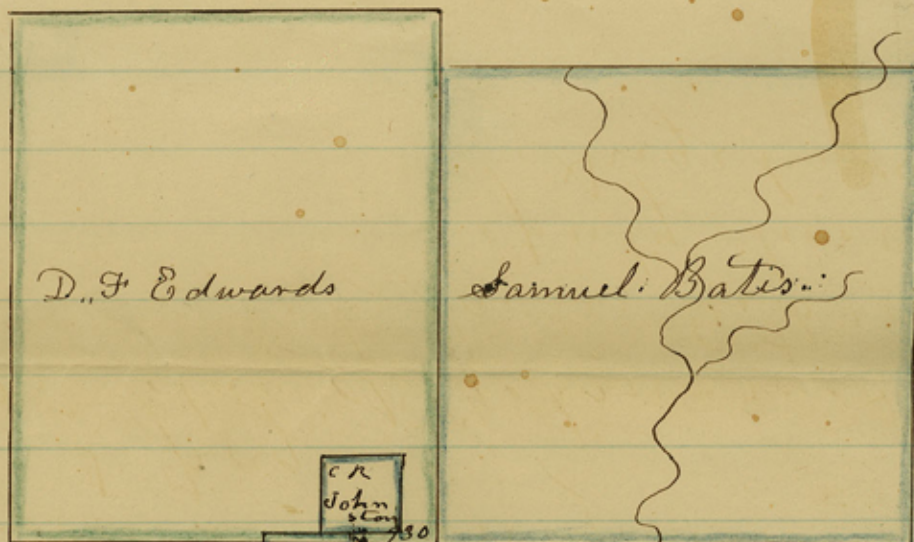 D.. F Edwards
Samuel. Batis..
C R
John
ston
730